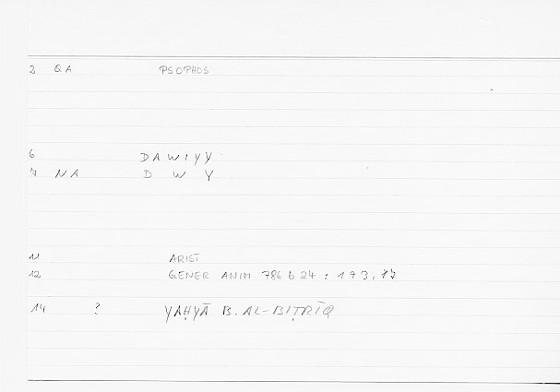 2 QA PSOPHOS
6 DAWIYY
7 NA D W Y
11 ARIST
12 GENER ANIM 786 b 24 : 173,17
14 ? YAḤYĀ B. AL-BIṬRĪQ